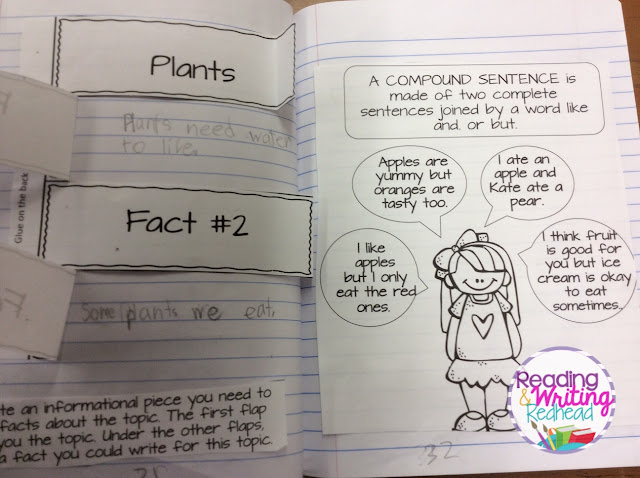 Plants
Plants need water
to life.
Glue on the back
Fact #2
Some plants we eat.
te an informational piece you need to
facts about the topic. The first flap
you the topic. Under the other flaps,
a fact you could write for this topic.
31
A COMPOUND SENTENCE is
made of two complete
sentences joined by a word like
and. or but.
Apples are
yummy but
oranges are
tasty too.
I ate an
apple and
Kate ate a
pear.
I like
apples
but I only
eat the red
ones.
I think fruit
is good for
you but ice
cream is okay
to eat
sometimes.
32
Reading
& Writing
Redhead